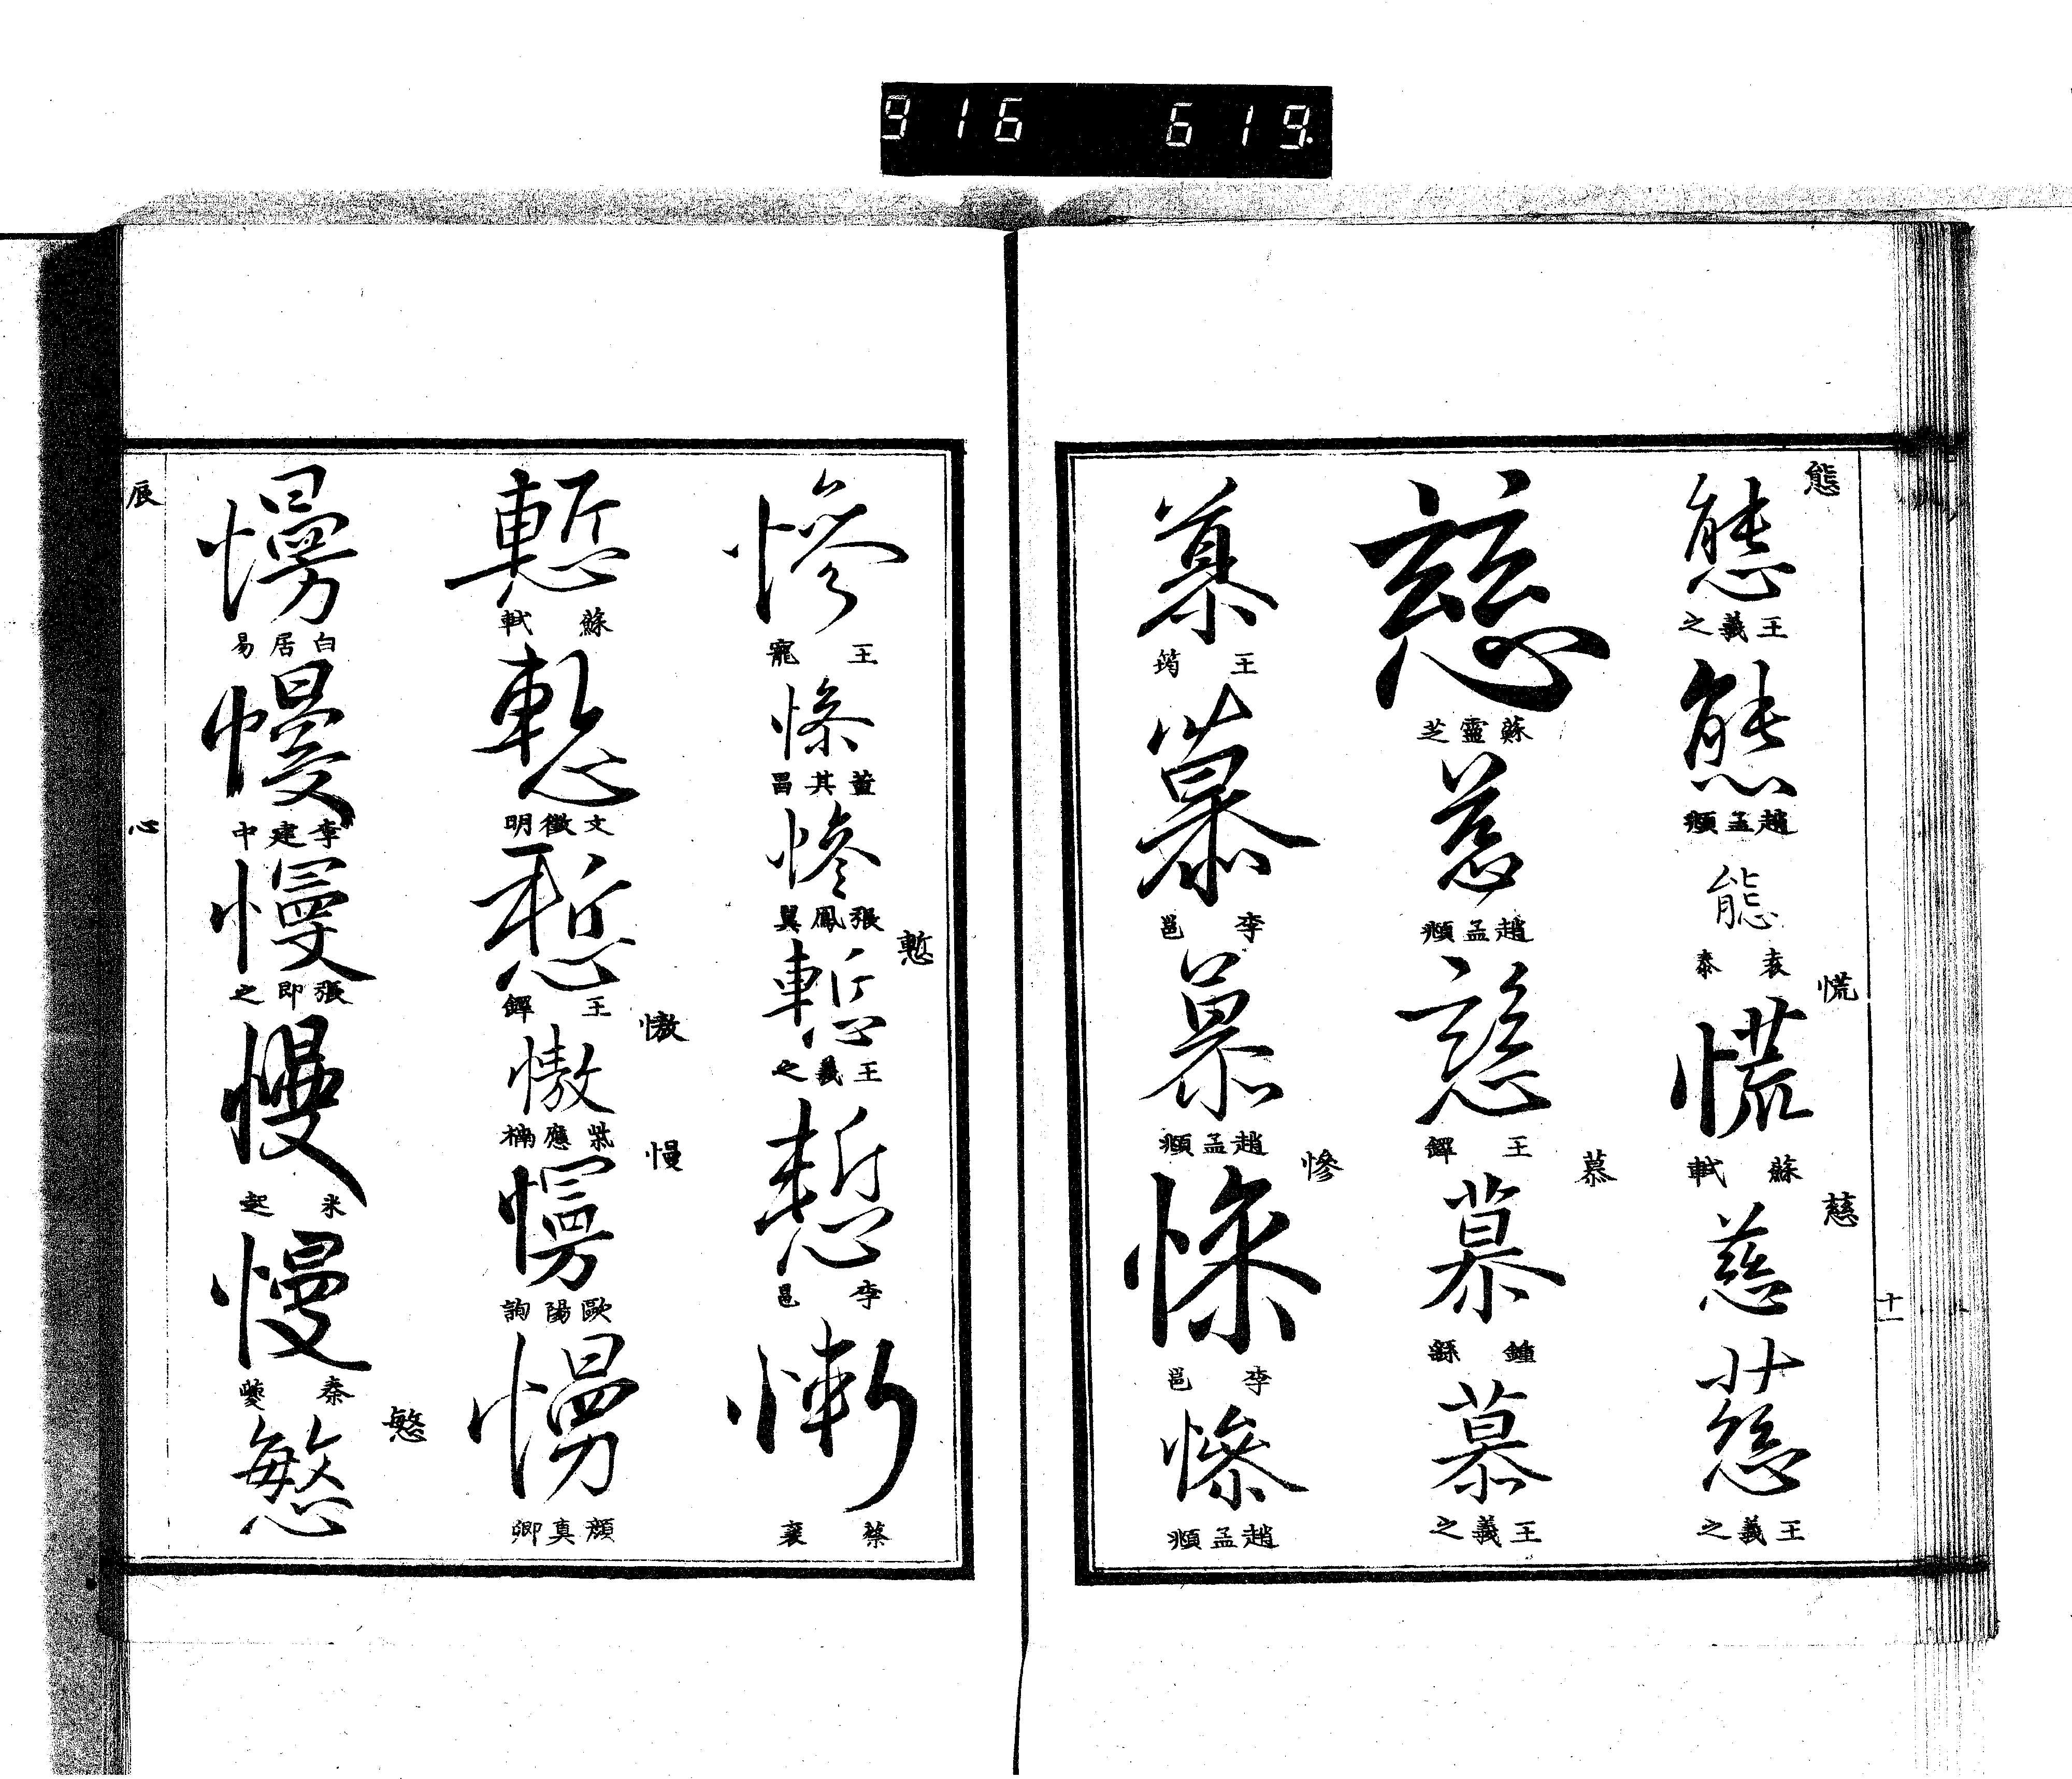 916 619.
態
態
王羲之
態
趙孟頫
態
袁泰
慌
慌
蘇軾
慈
慈
慈
王羲之
慈
蘇靈芝
慈
趙孟頫
慈
王鐸
慕
慕
鍾繇
慕
王羲之
慕
王筠
慕
李邕
慕
趙孟頫
慘
慘
李邕
慘
趙孟頫
十一
慘
王寵
慘
董其昌
慘
張鳳翼
慙
慙
王羲之
慙
李邕
慚
蔡襄
慙
蘇軾
慙
文徵明
慙
王鐸
慠
慠
應楠
慢
慢
歐陽詢
慢
顏真卿
慢
白居易
慢
李建中
慢
張即之
慢
米芾
慢
秦夔
慜
慜
辰
心